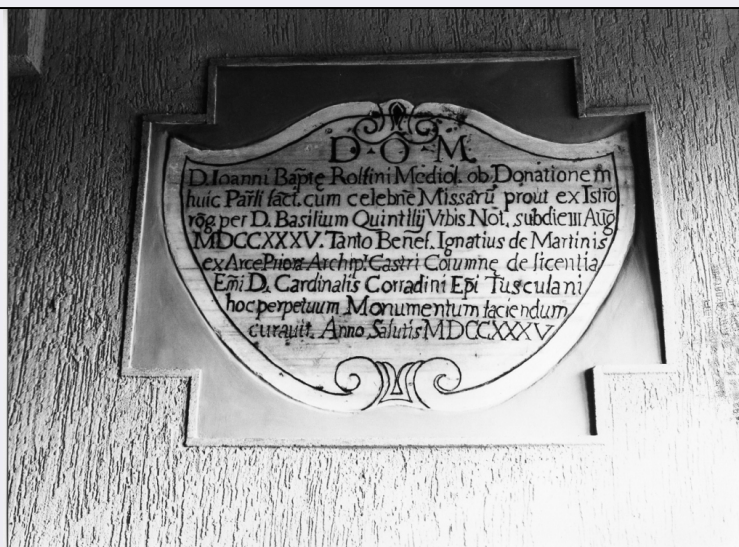 D·O·M·
D. Ioanni Bap̃te Rolfini Mediol. ob Donationem̃
huic Par̃li fact. cum celebñe Missarũ prout ex Istr̃o
rõg. per D. Basilium Quintilij Vrbis Not. sub die III Aug̃
MDCCXXXV. Tanto Benef. Ignatius de Martinis
ex Arce Priora Archip. Castri Columne de licentia
Em̃i D. Cardinalis Corradini Ep̃i Tusculani
hoc perpetuum Monumentum faciendum
curauit. Anno Salutis MDCCXXXV